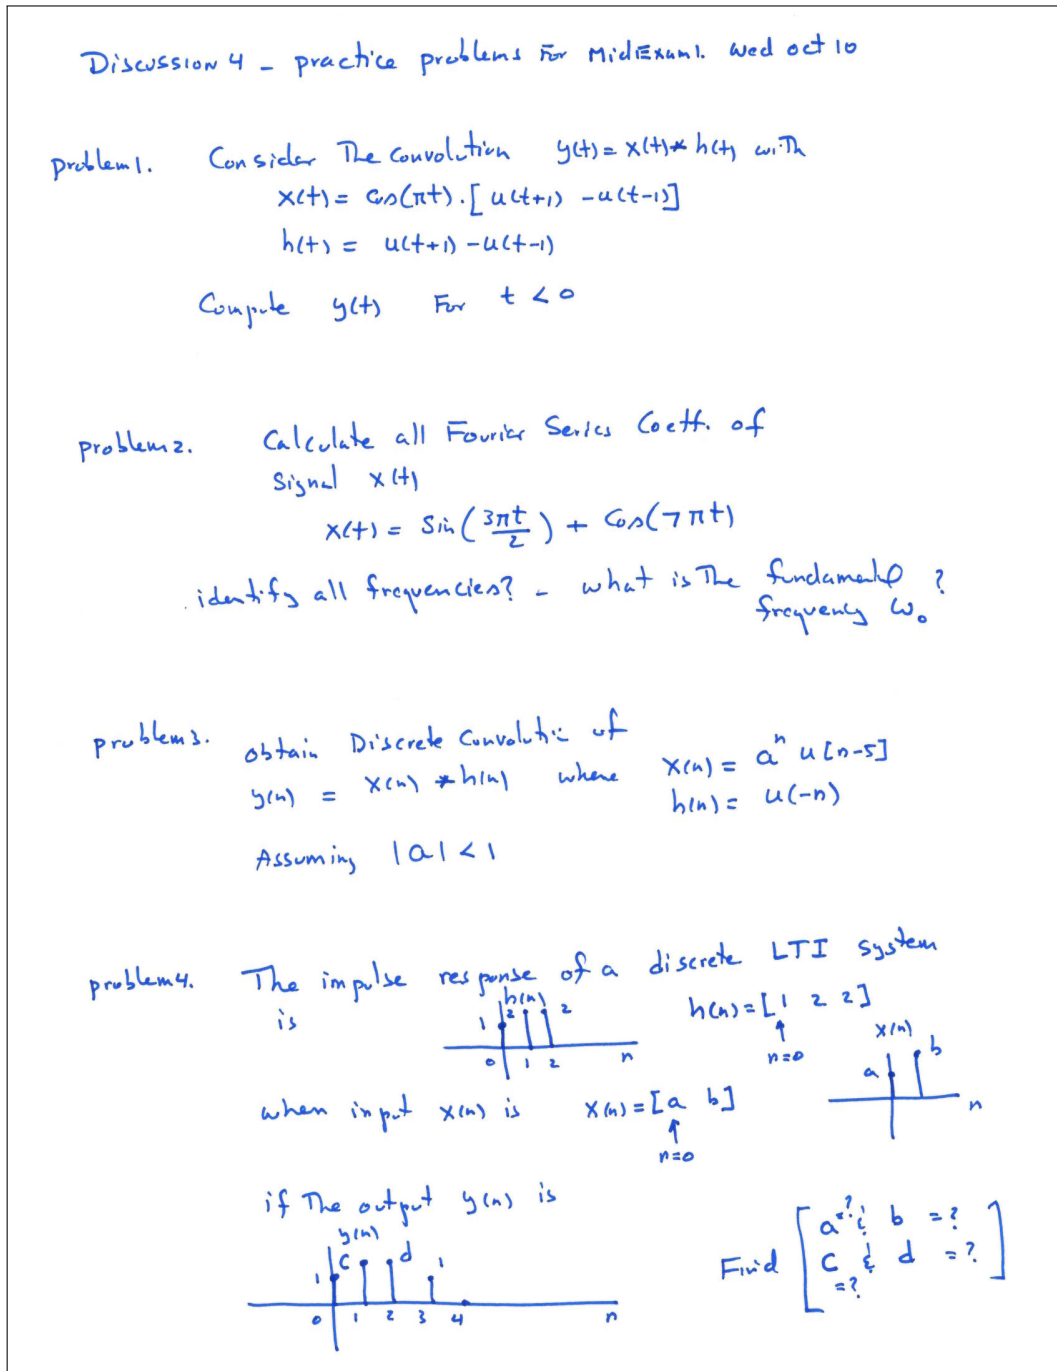 Discussion 4 - practice problems For MidExam1. wed oct 10
problem1. Consider The convolution y(t) = x(t) * h(t) with
x(t) = cos(πt) . [ u(t+1) - u(t-1)]
h(t) = u(t+1) - u(t-1)
Compute y(t) For t < 0
problem2. Calculate all Fourier Series Coeff. of
Signal x(t)
x(t) = Sin(3πt/2) + Cos(7πt)
identify all frequencies? - what is The fundamental ?
frequency ω₀
problem3. obtain Discrete Convolution of
y(n) = x(n) * h(n) where x(n) = aⁿ u[n-5]
h(n) = u(-n)
Assuming |a| < 1
problem4. The impulse response of a discrete LTI system
is h(n) h(n) = [1 2 2]
1 2 2
n=0
0 1 2 n
x(n)
a b
n
when input x(n) is x(n) = [a b]
n=0
if The output y(n) is
y(n)
1 C d 1
0 1 2 3 4 n
Find [ a =? & b = ?
C & d = ?
= ? ]